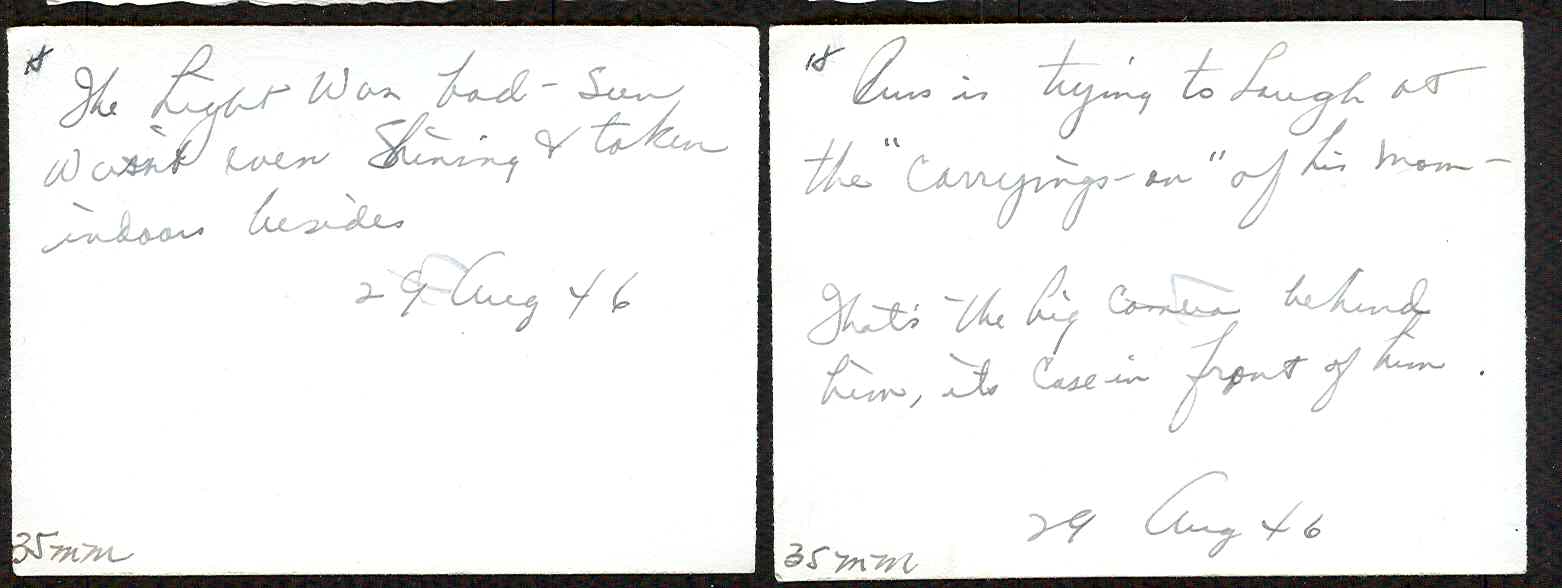 18
The Light Was bad - Sun
wasn't even Shining & taken
indoors besides
29 Aug 46
35mm
18
is trying to Laugh at
the "Carryings-on" of his Mom -
That's the big Camera behind
him, its Case in front of him.
29 Aug 46
35mm